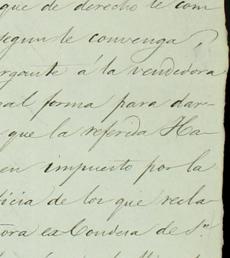 que de derecho le com
segun le convenga,
rgante á la vendedora
al forma para dar
que la referida Ha-
en impuesto por la
icia de los que recla
ora ex Condesa de Sn